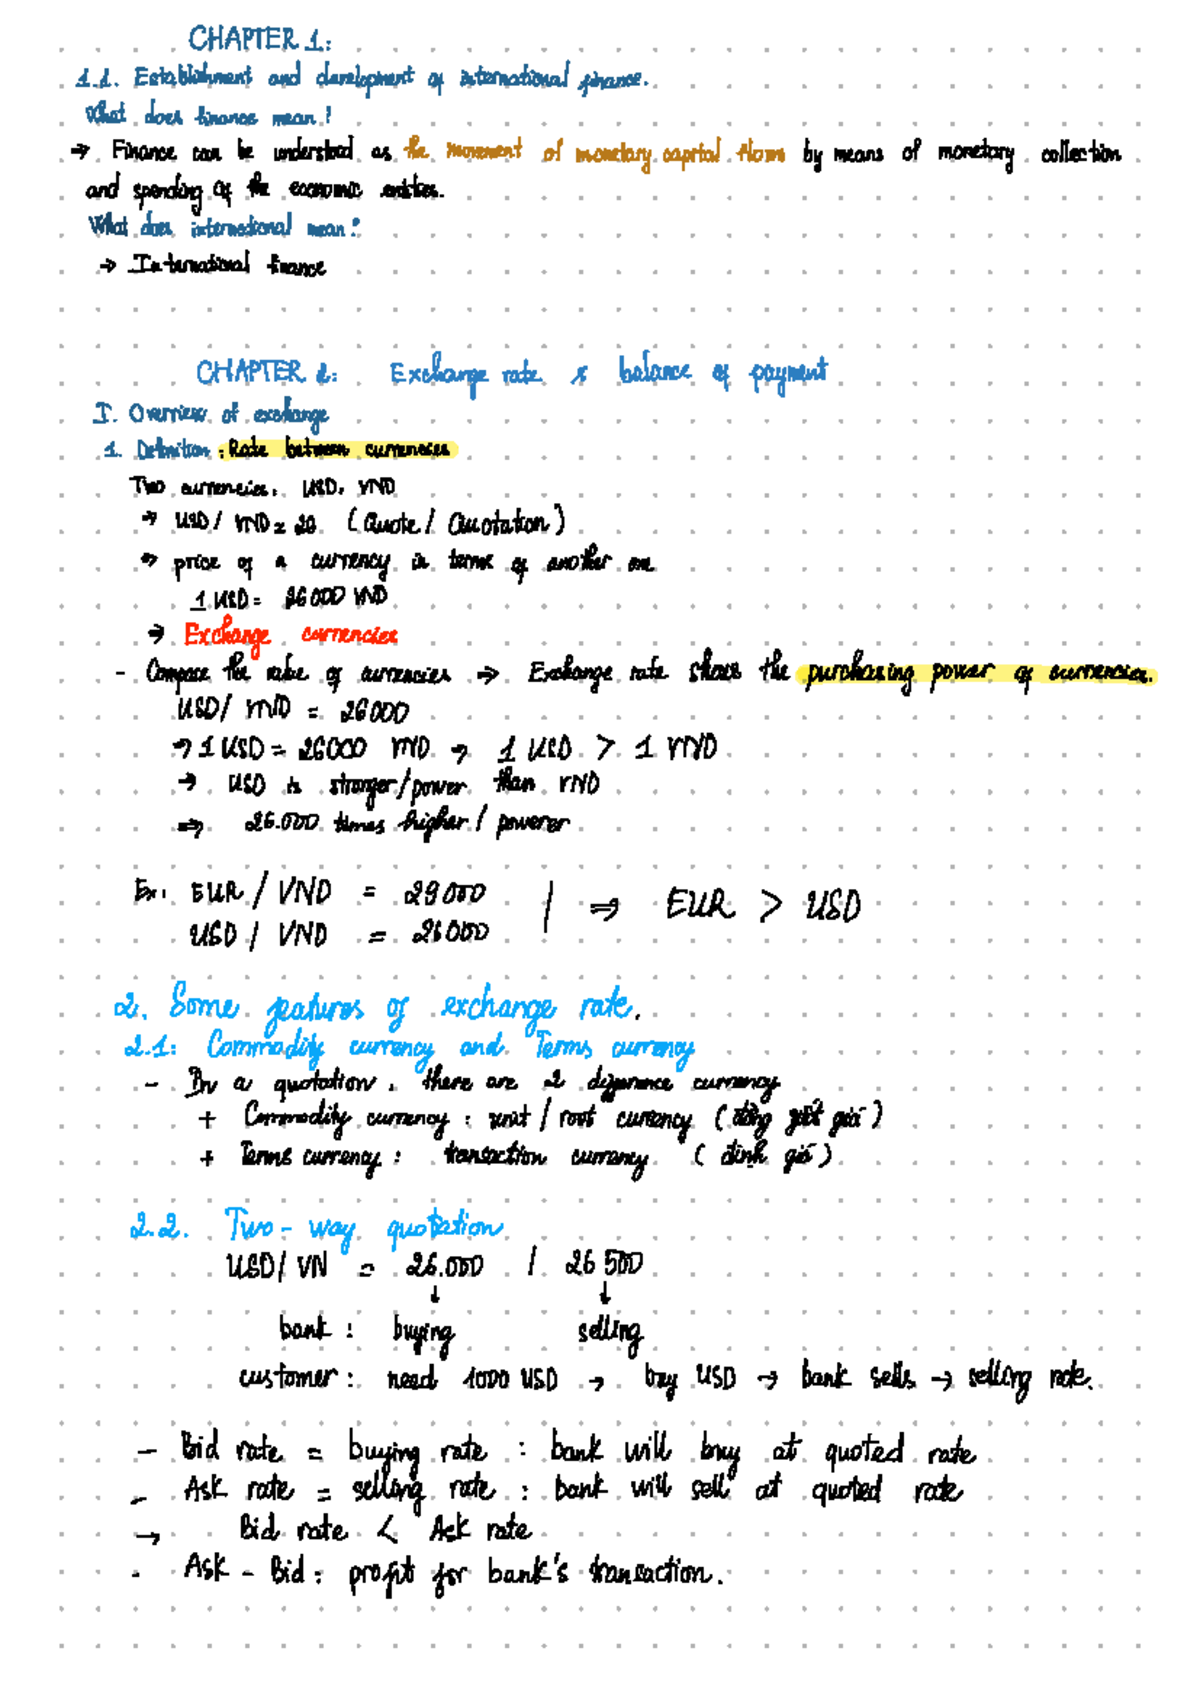 CHAPTER 1:
1.1. Establishment and development of international finance.
What does finance mean?
→ Finance can be understood as the movement of monetary capital flows by means of monetary collection
and spending of the economic entities.
What does international mean?
→ International finance
CHAPTER 2: Exchange rate & balance of payment
I. Overview of exchange
1. Definition: Rate between currencies
Two currencies: USD, VND
→ USD/VND = 26 (Quote/Quotation)
→ price of a currency in terms of another one
1 USD = 26000 VND
→ Exchange currencies
- Compare the value of currencies → Exchange rate shows the purchasing power of currencies.
USD/VND = 26000
→ 1 USD = 26000 VND → 1 USD > 1 VND
→ USD is stronger/power than VND
⇒ 26.000 times higher/powerer
Ex: EUR/VND = 29000
USD/VND = 26000 | ⇒ EUR > USD
2. Some features of exchange rate.
2.1: Commodity currency and Terms currency
- In a quotation, there are 2 difference currency
+ Commodity currency: unit/root currency (đồng yết giá)
+ Terms currency: transaction currency (định giá)
2.2. Two-way quotation
USD/VN = 26.000 / 26 500
↓ ↓
bank: buying selling
customer: need 1000 USD → buy USD → bank sells → selling rate.
- Bid rate = buying rate: bank will buy at quoted rate
- Ask rate = selling rate: bank will sell at quoted rate
→ Bid rate < Ask rate
- Ask - Bid: profit for bank's transaction.